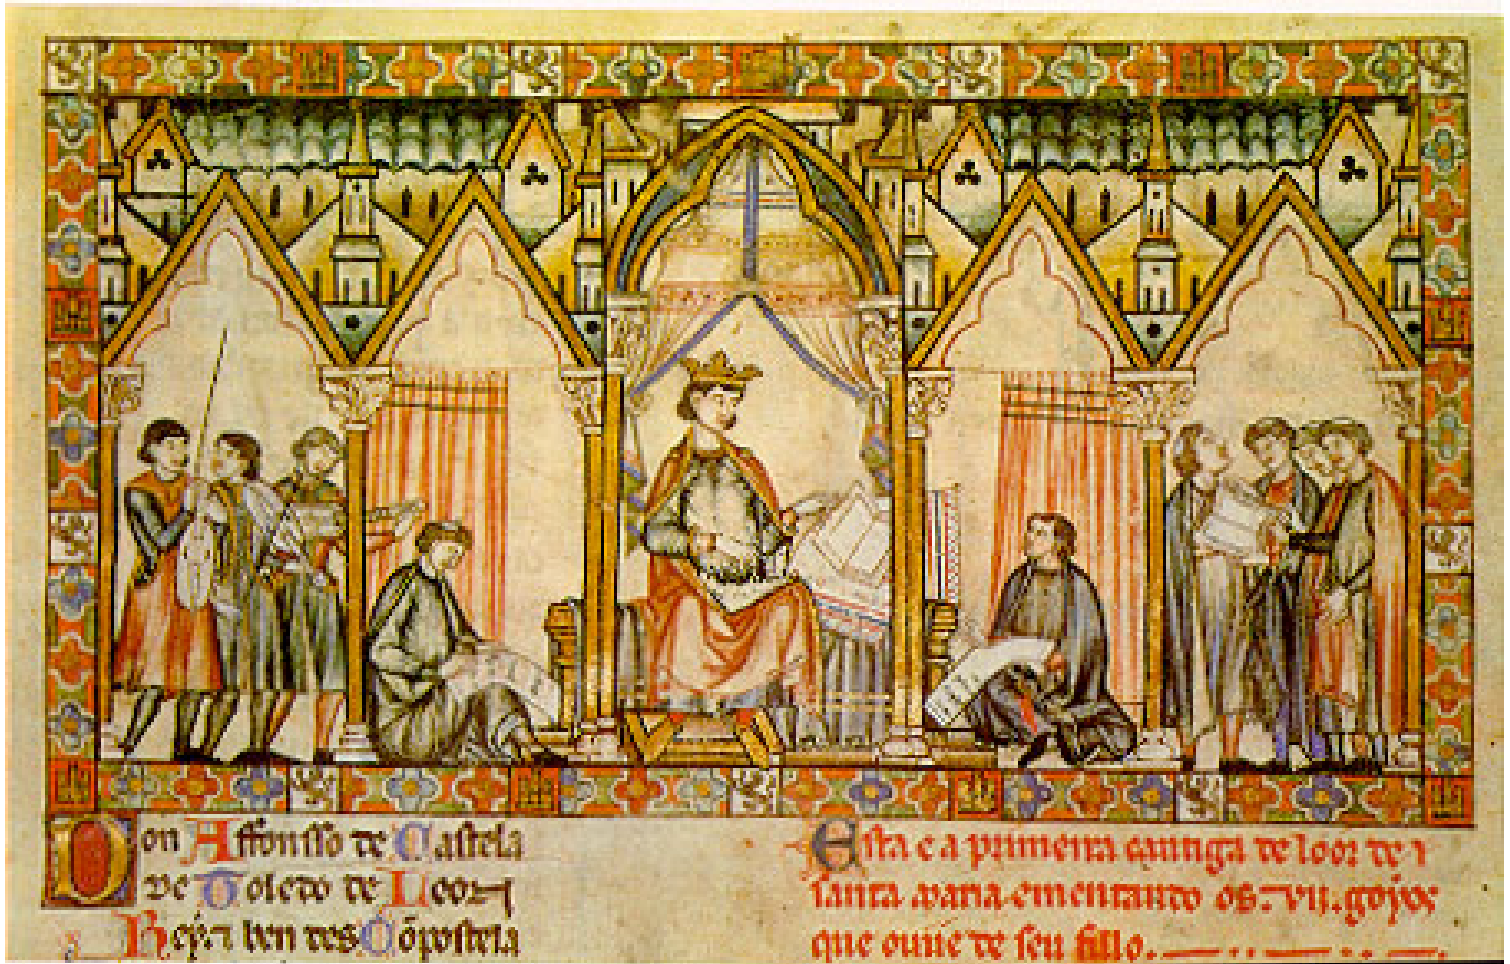 Don Affonsso de Castela
de Toledo de Leon
Rey ⁊ ben des Cōpostela
Esta e a primeira cantiga de loor de
santa maria ementando os .vij. goyos
que ouue de seu fillo.